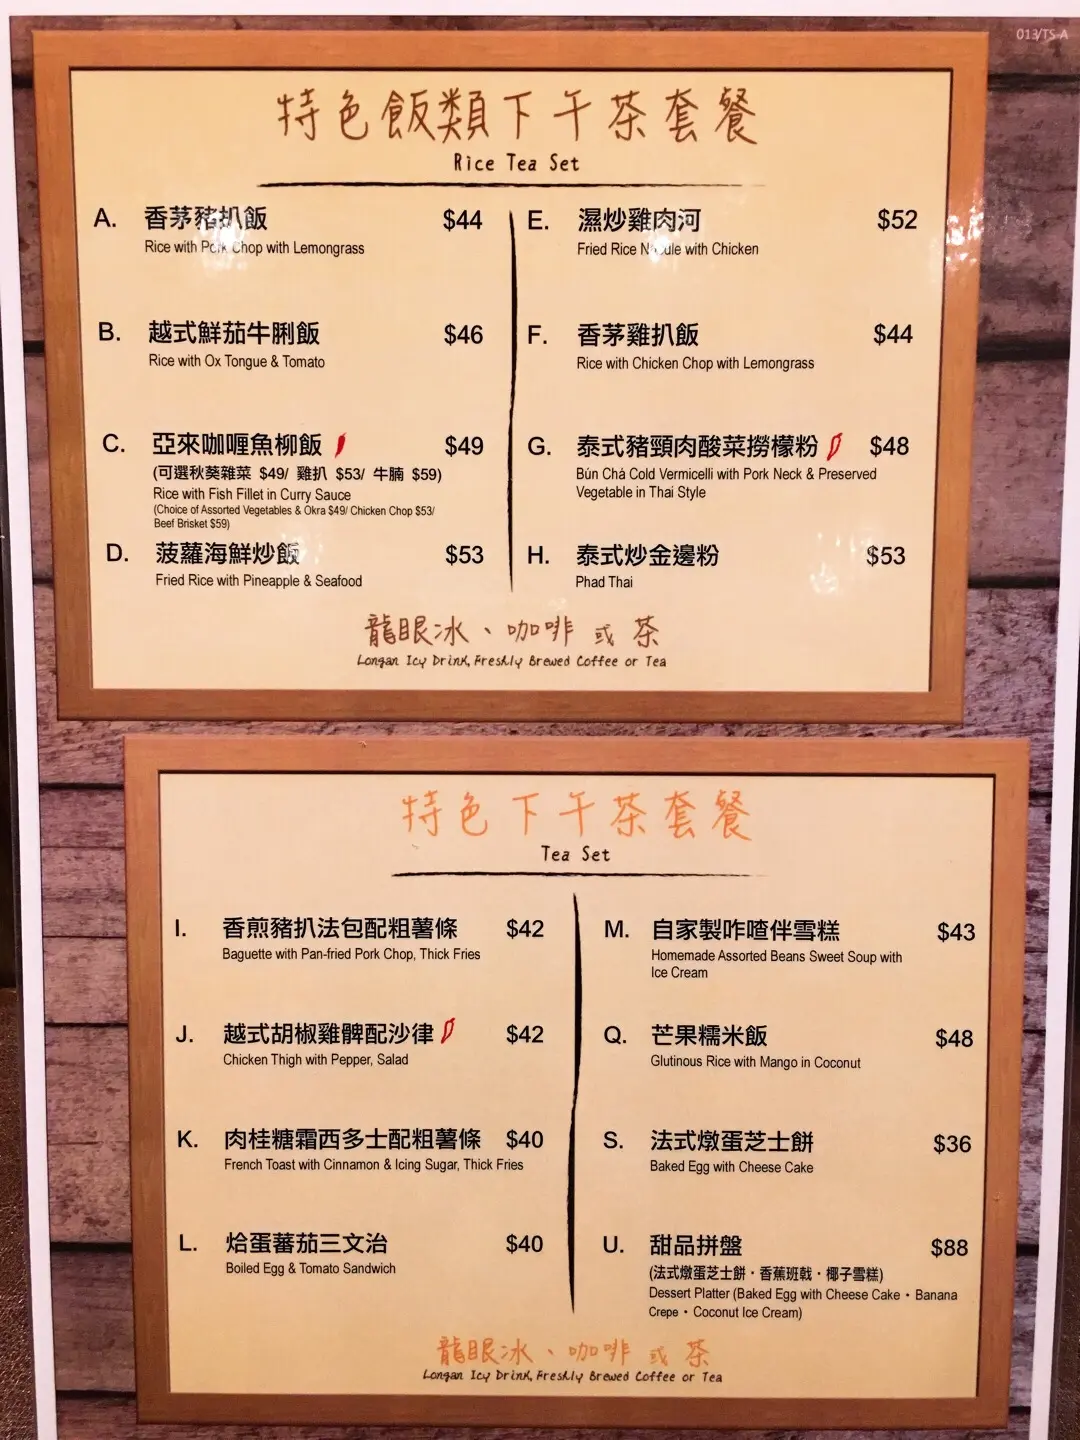 013/TS-A
特色飯類下午茶套餐
Rice Tea Set
A. 香茅豬扒飯 $44
Rice with Pork Chop with Lemongrass
B. 越式鮮茄牛脷飯 $46
Rice with Ox Tongue & Tomato
C. 亞來咖喱魚柳飯 $49
(可選秋葵雜菜 $49/ 雞扒 $53/ 牛腩 $59)
Rice with Fish Fillet in Curry Sauce
(Choice of Assorted Vegetables & Okra $49/ Chicken Chop $53/
Beef Brisket $59)
D. 菠蘿海鮮炒飯 $53
Fried Rice with Pineapple & Seafood
E. 濕炒雞肉河 $52
Fried Rice Noodule with Chicken
F. 香茅雞扒飯 $44
Rice with Chicken Chop with Lemongrass
G. 泰式豬頸肉酸菜撈檬粉 $48
Bún Chá Cold Vermicelli with Pork Neck & Preserved
Vegetable in Thai Style
H. 泰式炒金邊粉 $53
Phad Thai
龍眼冰、咖啡 或 茶
Longan Icy Drink, Freshly Brewed Coffee or Tea
特色下午茶套餐
Tea Set
I. 香煎豬扒法包配粗薯條 $42
Baguette with Pan-fried Pork Chop, Thick Fries
J. 越式胡椒雞髀配沙律 $42
Chicken Thigh with Pepper, Salad
K. 肉桂糖霜西多士配粗薯條 $40
French Toast with Cinnamon & Icing Sugar, Thick Fries
L. 烚蛋蕃茄三文治 $40
Boiled Egg & Tomato Sandwich
M. 自家製咋喳伴雪糕 $43
Homemade Assorted Beans Sweet Soup with
Ice Cream
Q. 芒果糯米飯 $48
Glutinous Rice with Mango in Coconut
S. 法式燉蛋芝士餅 $36
Baked Egg with Cheese Cake
U. 甜品拼盤 $88
(法式燉蛋芝士餅・香蕉班戟・椰子雪糕)
Dessert Platter (Baked Egg with Cheese Cake・Banana
Crepe・Coconut Ice Cream)
龍眼冰、咖啡 或 茶
Longan Icy Drink, Freshly Brewed Coffee or Tea